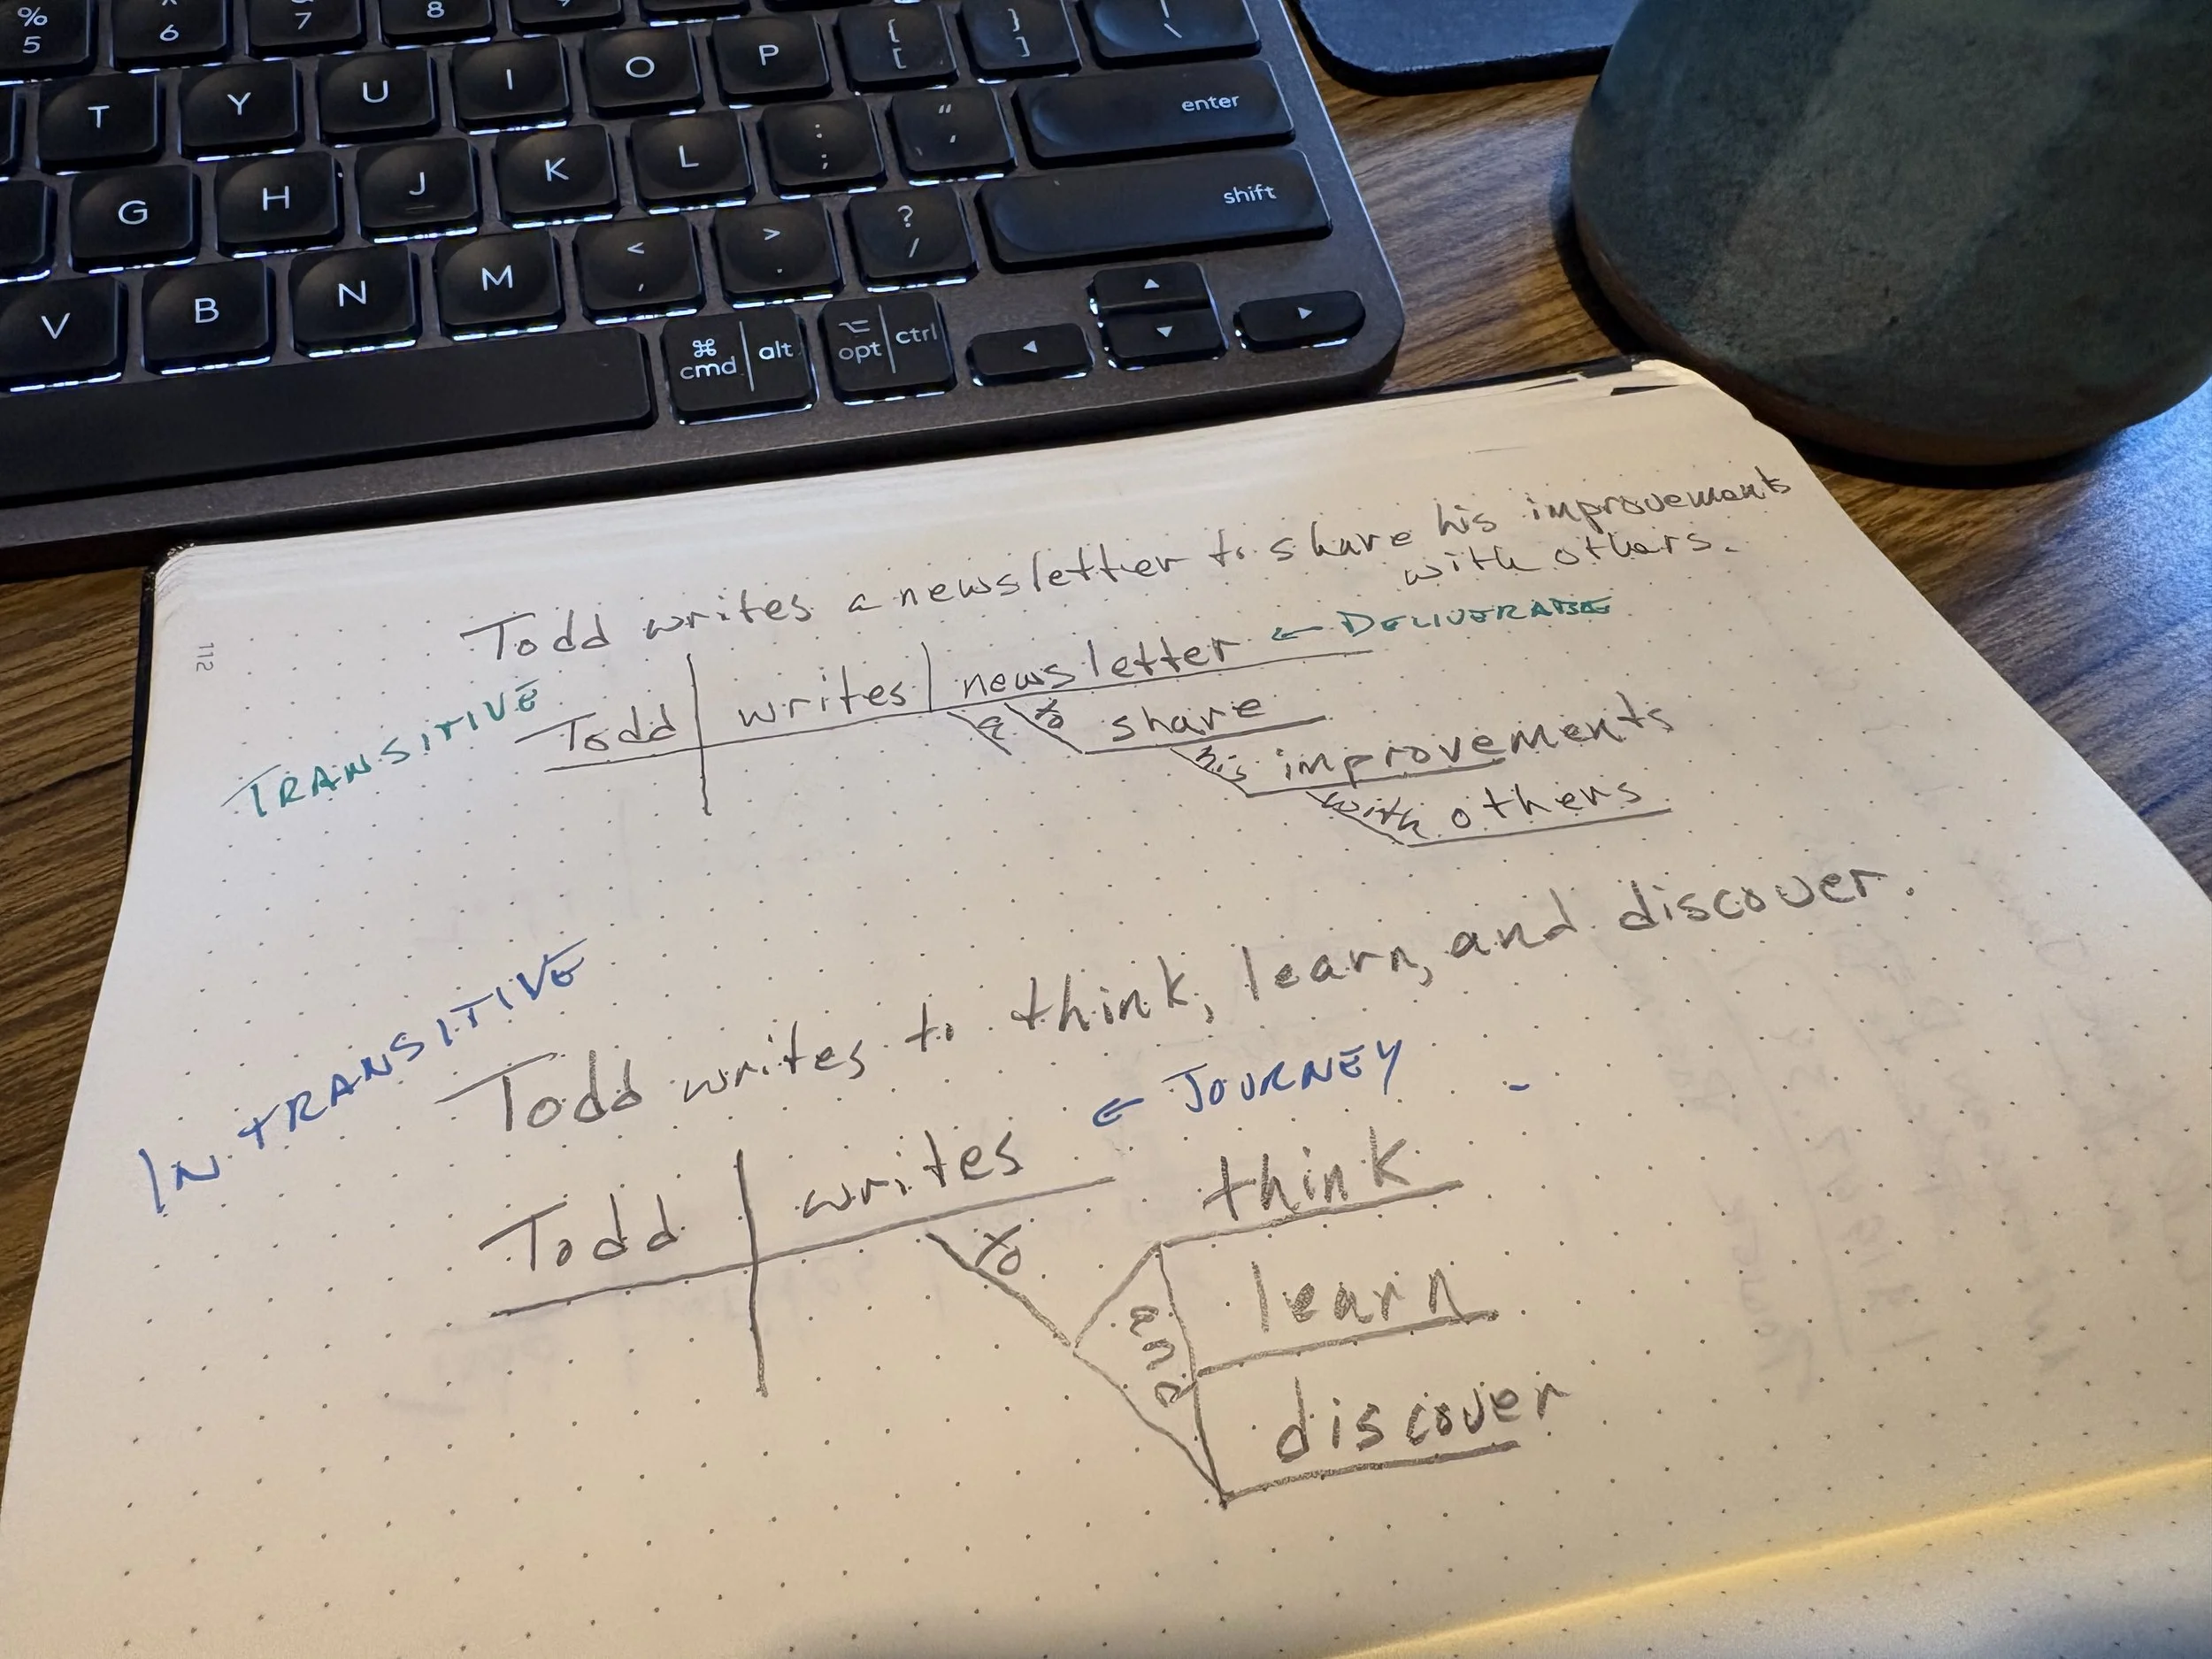 % 5
^ 6
7
8
T Y U I O P { [ } ] | \
G H J K L : ; " ' enter
V B N M < , > . ? / shift
⌘ cmd alt ⌥ opt ctrl ◄ ▲ ▼ ►
112
Todd writes a newsletter to share his improvements
with others.
TRANSITIVE
Todd writes newsletter ← DELIVERABLE
a to share
his improvements
with others
INTRANSITIVE
Todd writes to think, learn, and discover.
← JOURNEY
Todd writes
to think
and learn
discover